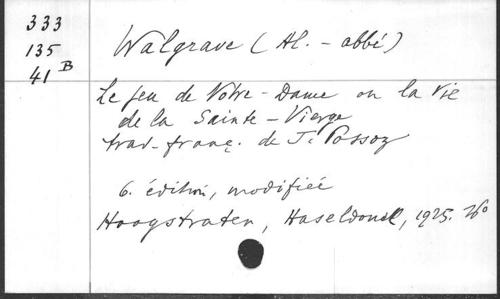 333
135
41 B
Walgrave (Al. - abbé)
Le jeu de Notre-Dame ou la Vie
de la Sainte-Vierge
trad. franç. de J. Possoz
6. édition, modifiée
Hoogstraten, Haseldonck, 1925.